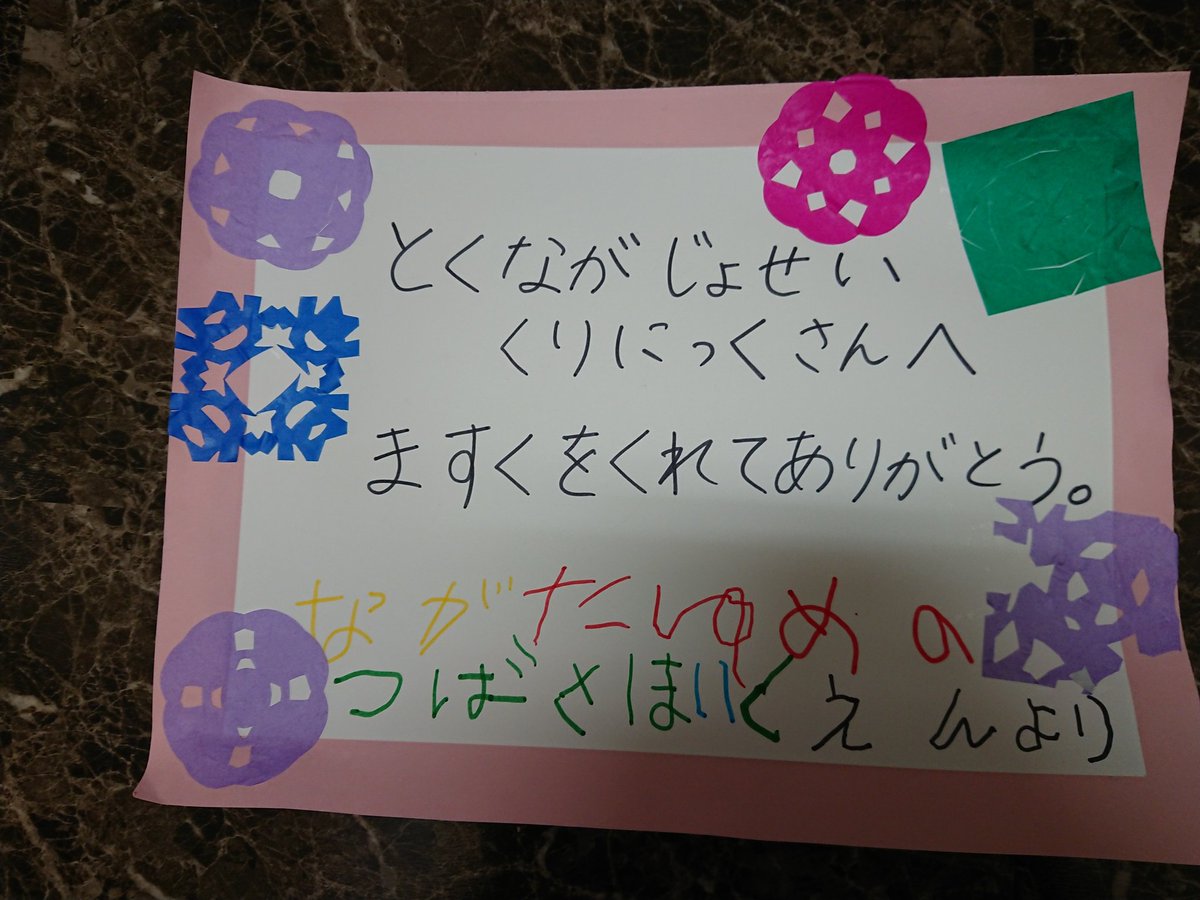 とくながじょせい
くりにっくさんへ
ますくをくれてありがとう。
ながたにゆめの
つばさほいくえんより